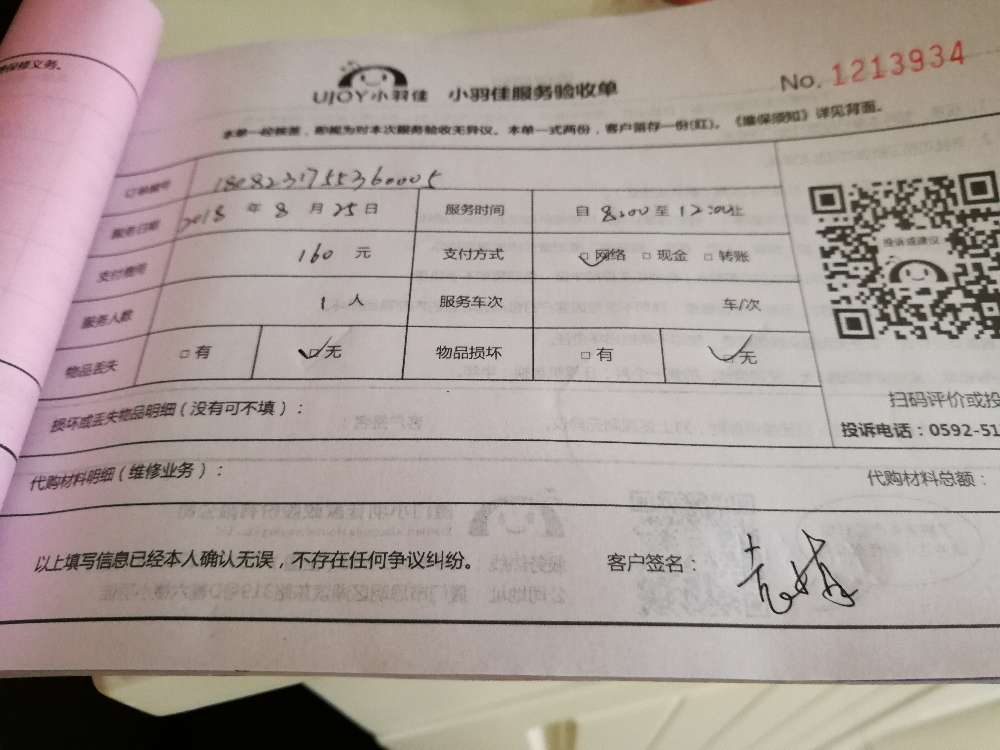 保修义务。
UJOY小羽佳 小羽佳服务验收单
No. 1213934
本单一经核签，即视为对本次服务验收无异议。本单一式两份，客户留存一份(红)。《维保须知》详见背面。
订单编号 1808231755360005
服务日期 2018 年 8 月 25 日 服务时间 自 8:00 至 12:00 止
支付费用 160 元 支付方式 □ 网络 □ 现金 □ 转账
服务人数 1 人 服务车次 车/次
物品丢失 □ 有 □ 无 物品损坏 □ 有 □ 无
投诉或建议
扫码评价或投
投诉电话：0592-51
损坏或丢失物品明细（没有可不填）：
代购材料明细（维修业务）： 代购材料总额：
以上填写信息已经本人确认无误，不存在任何争议纠纷。 客户签名：